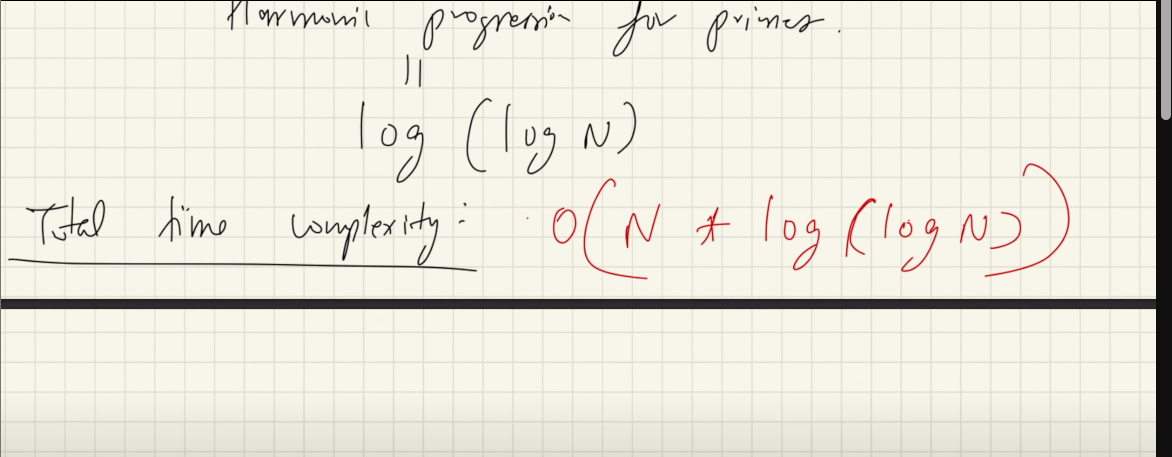 Harmonic progression for primes.
||
log (log N)
Total time complexity: O(N * log(log N))